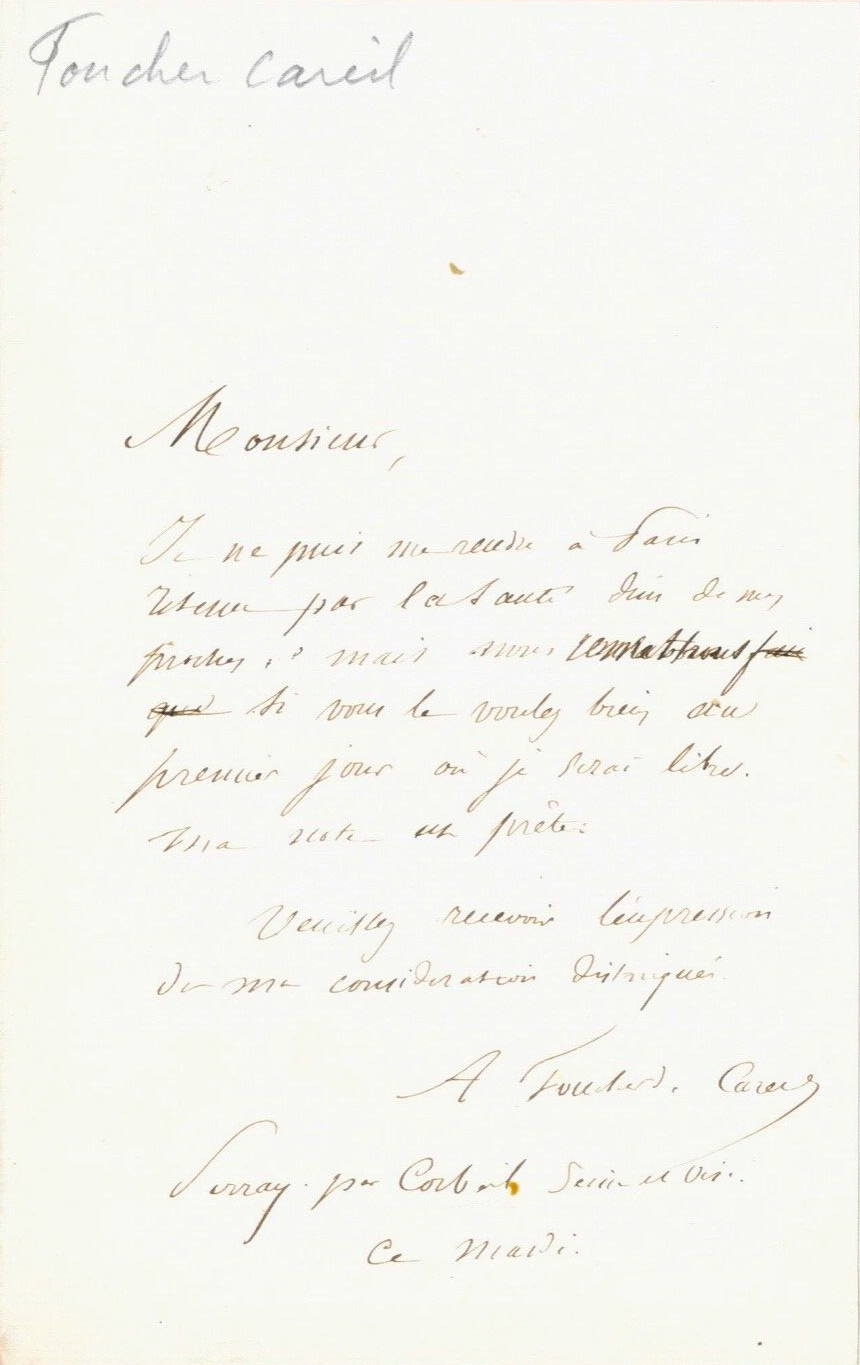 Foucher Careil
Monsieur,
Je ne puis me rendre à Paris
retenu par la santé d'un de mes
proches, mais nous remettrons
si vous le voulez bien au
premier jour où je serai libre.
Ma note est prête.
Veuillez recevoir l'expression
de ma consideration distinguée
A Foucher d. Careil
Perray par Corbeil Seine et Oise.
Ce Mardi.